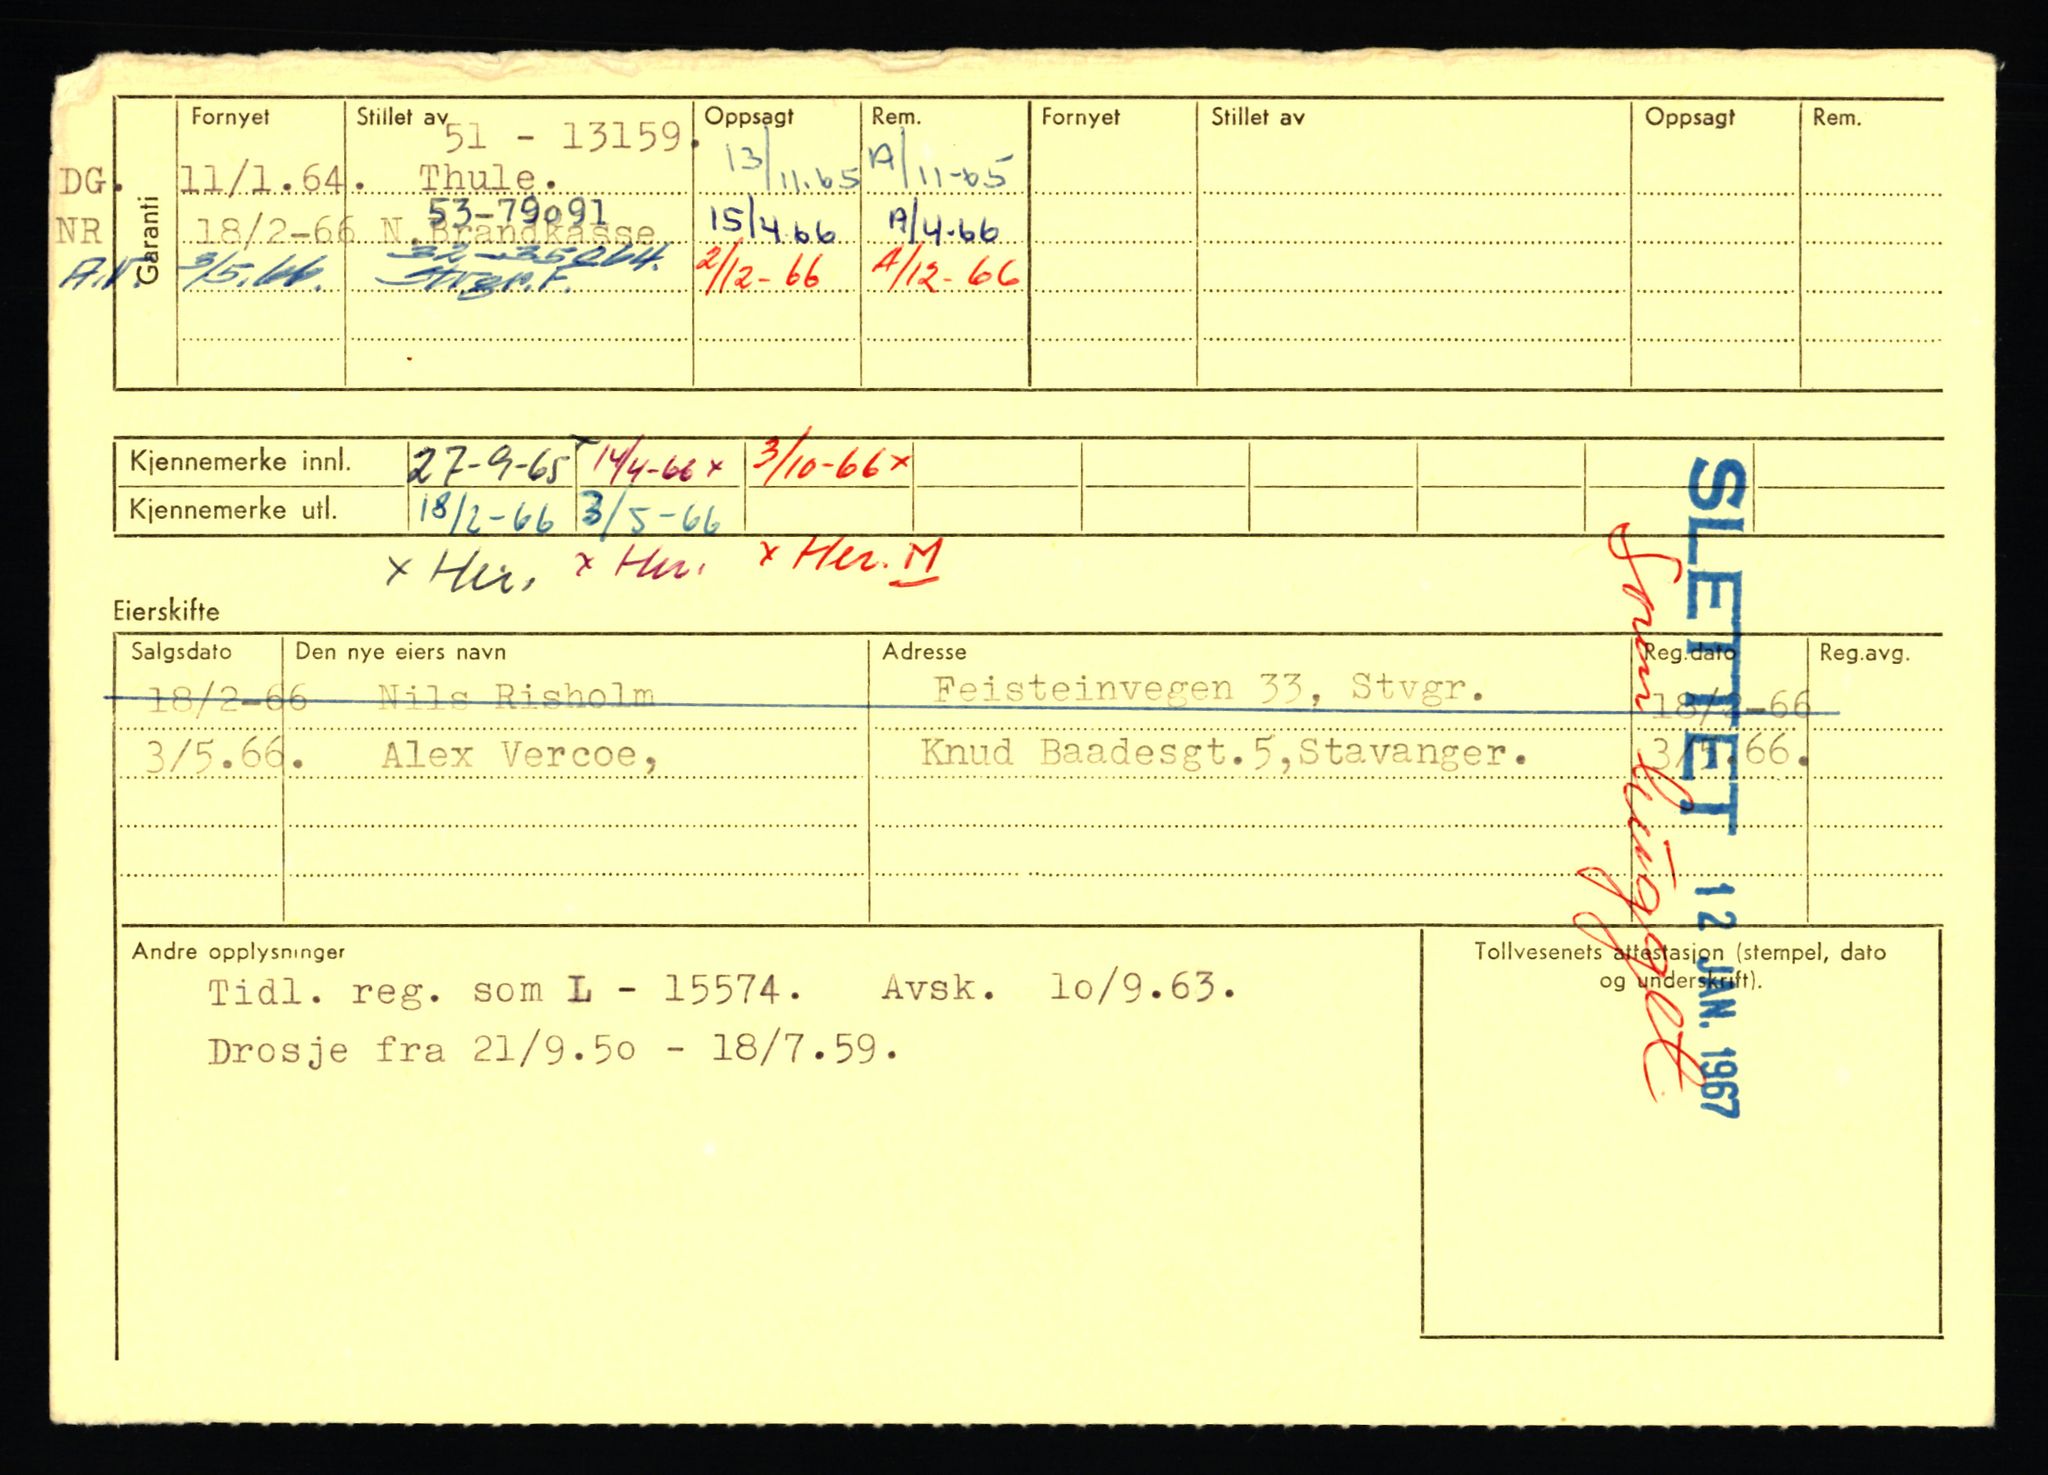 Fornyet Stillet av Oppsagt Rem. Fornyet Stillet av Oppsagt Rem.
Garanti
51 - 13159.
DG. 11/1.64. Thule. 13/11.65 A/11-65
53-79091
NR 18/2-66 N.Brandkasse 15/4.66 A/4-66
A.N. 3/5.66. 2/12-66 A/12-66
Kjennemerke innl. 27-9-65 x 14/4-66 x 3/10-66 x
Kjennemerke utl. 18/2-66 3/5-66
x Her. x Her. x Her. M
Eierskifte
Salgsdato Den nye eiers navn Adresse Reg.dato Reg.avg.
18/2-66 Nils Risholm Feisteinvegen 33, Stvgr. 18/2-66
3/5.66. Alex Vercoe, Knud Baadesgt.5,Stavanger. 3/5.66.
Andre opplysninger
Tidl. reg. som L - 15574. Avsk. 1o/9.63.
Drosje fra 21/9.5o - 18/7.59.
Tollvesenets attestasjon (stempel, dato
og underskrift).
SLETTET 12 JAN. 1967
Som hugget